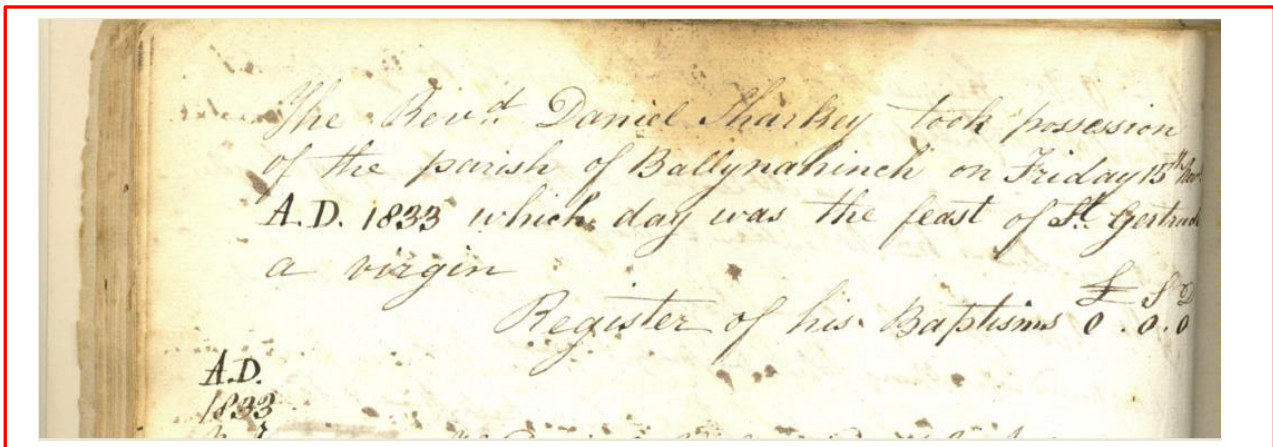 The Revd. Daniel Sharkey took possession
of the parish of Ballynahinch on Friday 15th Novr
A.D. 1833 which day was the feast of St. Gertrude
a virgin
£ S D
Register of his Baptisms 0 . 0 . 0
A.D.
1833